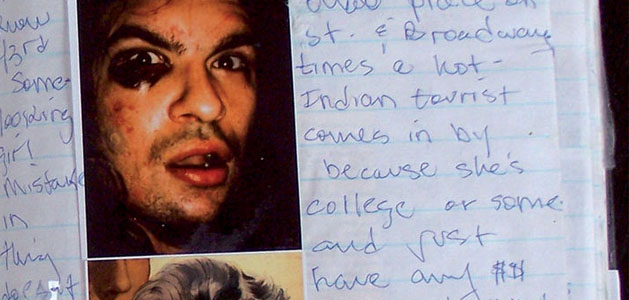 know
43rd
Some-
looking
girl
mistake
in
thing
doesn't
place on
st. & Broadway
times a hot-
Indian tourist
comes in by
because she's
college or some
and just
have any $$